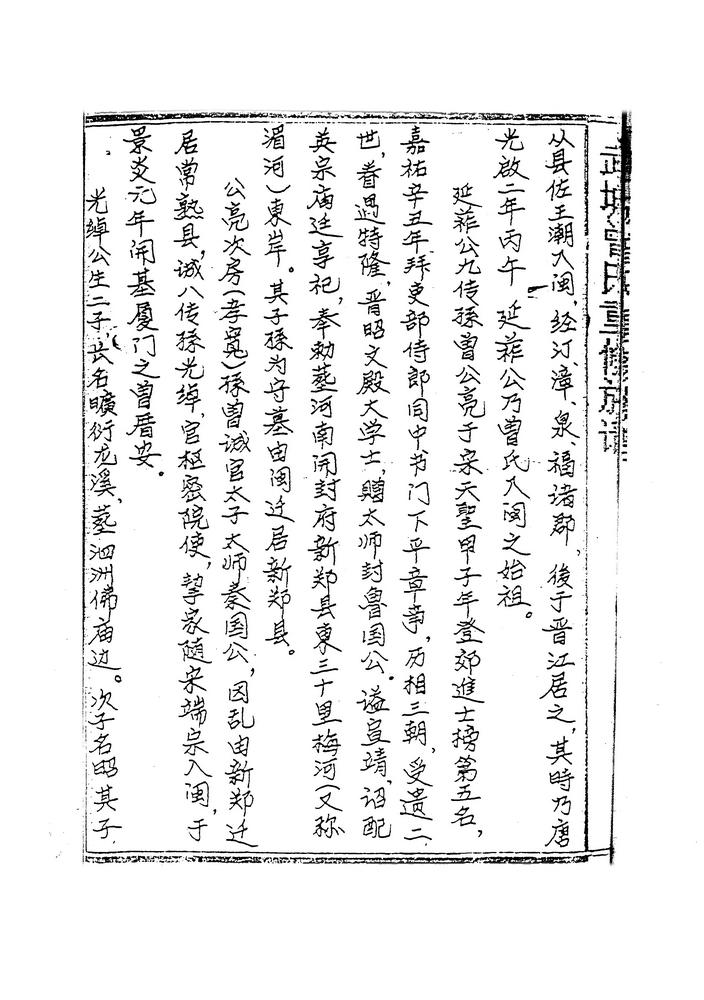 武城曾氏重修族谱
从县佐王潮入闽，经汀、漳、泉、福诸郡，後于晋江居之，其時乃唐
光啟二年丙午 延菲公乃曾氏入闽之始祖。
延菲公九传孫曾公亮于宋天聖甲子年登郊進士榜第五名，
嘉祐辛丑年拜吏部侍郎同中书门下平章亊，历相三朝，受遗二
世，眷遇特隆，晋昭文殿大学士，赠太师封魯国公。谥宣靖，诏配
英宗庙廷享祀，奉勅葬河南開封府新郑县東三十里梅河（又称
湄河）東岸。其子孫为守墓由闽迁居新郑县。
公亮次房（孝寬）孫曾诚官太子太师秦国公，因乱由新郑迁
居常熟县，诚八传孫光绰，官枢密院使，挈家随宋端宗入闽，于
景炎元年開基厦门之曾厝安。
光绰公生二子 長名曠衍龙溪，葬泗洲佛庙边。次子名昭其子